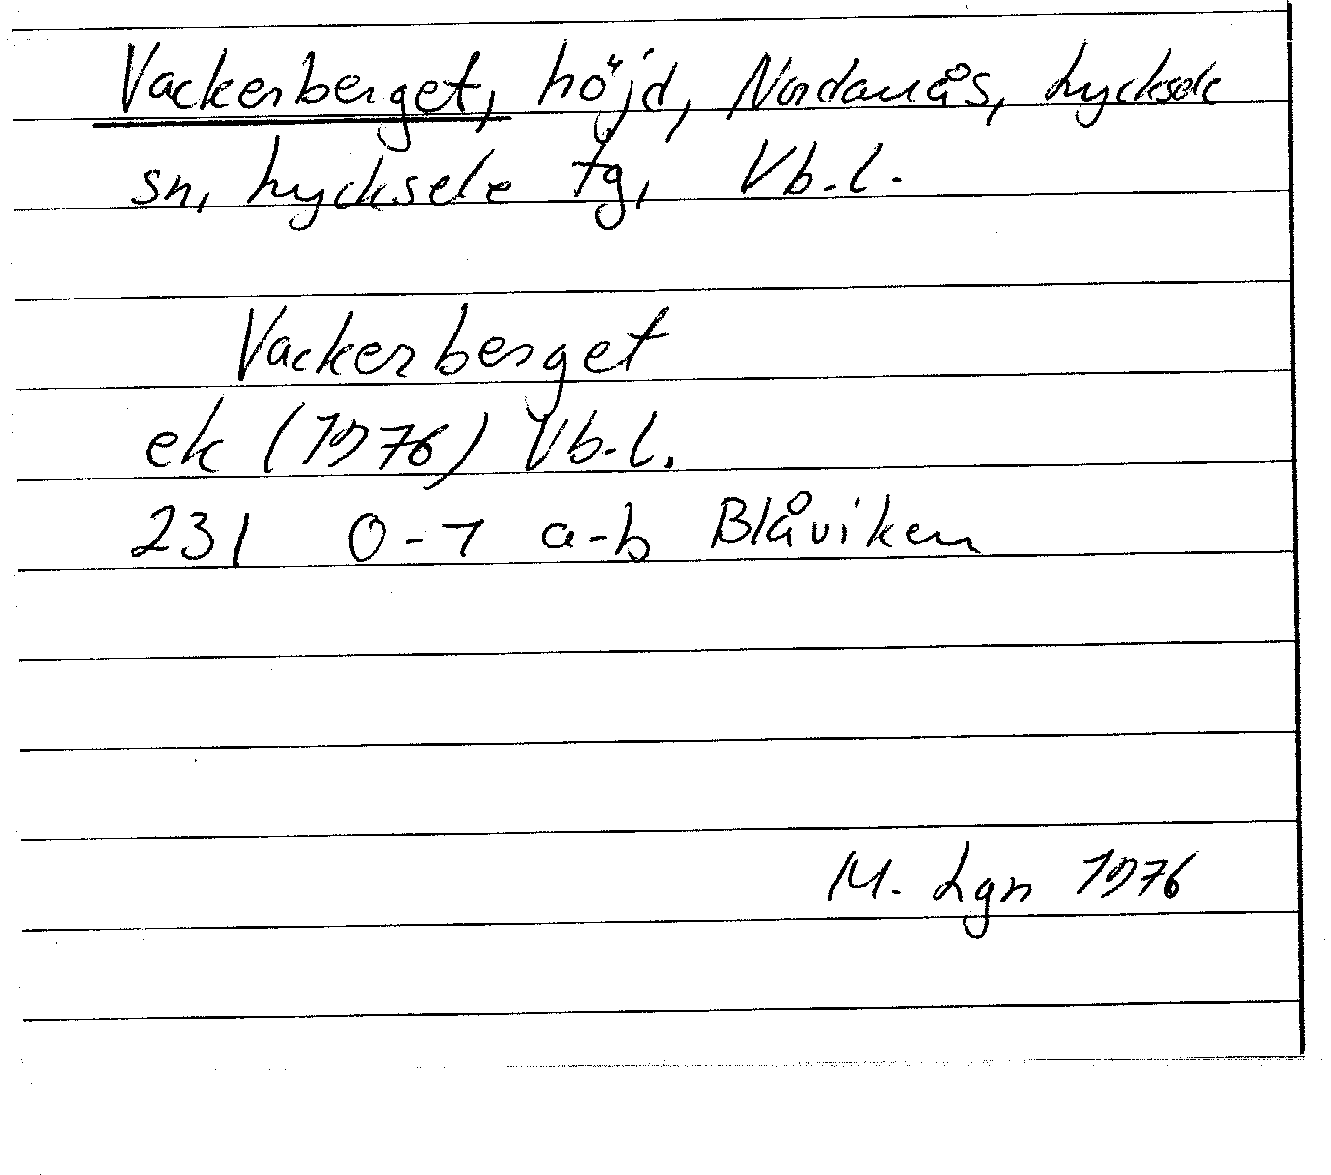 Vackerberget, höjd, Nordanås, Lycksele
sn, Lycksele tg, Vb.l.
Vackerberget
ek (1976) Vb.l.
23I 0-1 a-b Blåviken
M. Lgn 1976